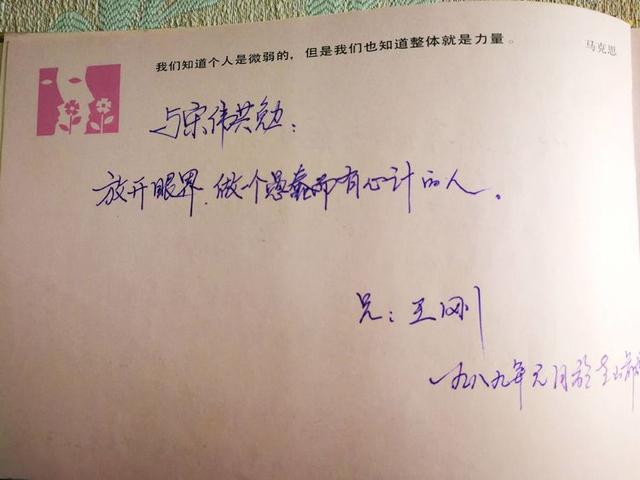 我们知道个人是微弱的，但是我们也知道整体就是力量。
马克思
与宋伟共勉：
放开眼界，做个愚蠢而有心计的人。
兄：王刚
一九八九年元月於